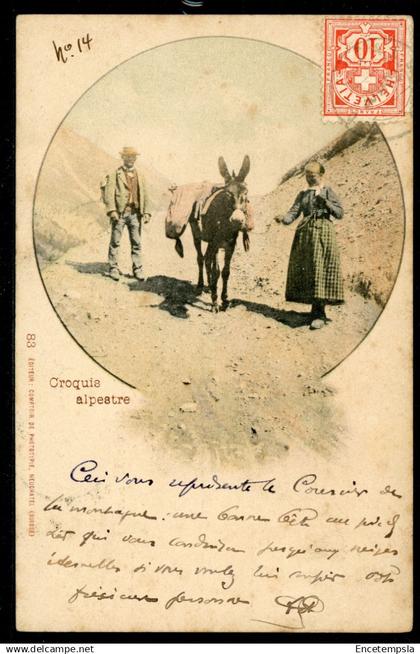 No. 14
10
HELVETIA
Croquis
alpestre
83 ÉDITEUR: COMPTOIR DE PHOTOTYPIE, NEUCHATEL (SUISSE)
Ceci vous représente le Coursier de
la montagne: une bonne bête au pied
sûr qui vous conduira jusqu'aux neiges
éternelles si vous voulez lui confier votre
précieuse personne
Encetempsla
www.delcampe.net